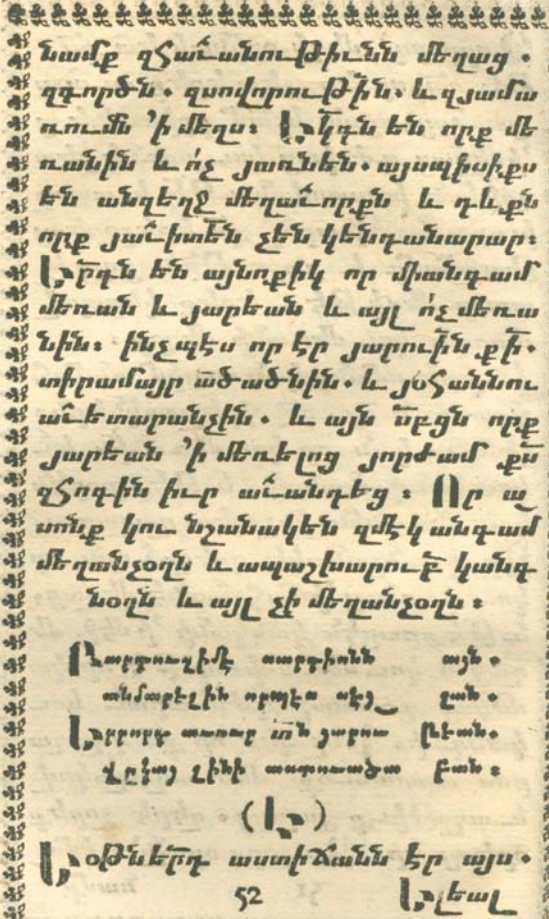 նամք զհաւանութիւնն մեղաց.
զգործն. զսովորութին. և զյամա
ռումն ՚ի մեղս։ Եկդն են որք մե
ռանին և ոչ յառնեն. այսպիսիքս
են անզեղջ մեղաւորքն և դևքն
որք յաւիտեն չեն կենդանարար։
Երդն են այնոքիկ որ միանգամ
մեռան և յարեան և այլ ոչ մեռա
նին։ ինչպէս որ էր յարուին քի.
տիրամայր ածածնին. և յօհաննու
աւետարանչին. և այն սբցն որք
յարեան ՚ի մեռելոց յորժամ քս
զհոգին իւր աւանդեց։ Որ ա
սոնք կու նշանակեն զմէկ անգամ
մեղանչօղն և ապաշխարուբ կանգ
նօղն և այլ չի մեղանչօղն։
այն.
անմարելին որպէս
Երրորդ աւուր
լինի
(Ե)
Եօթներդ աստիճանն էր այս.
52 Ելեալ